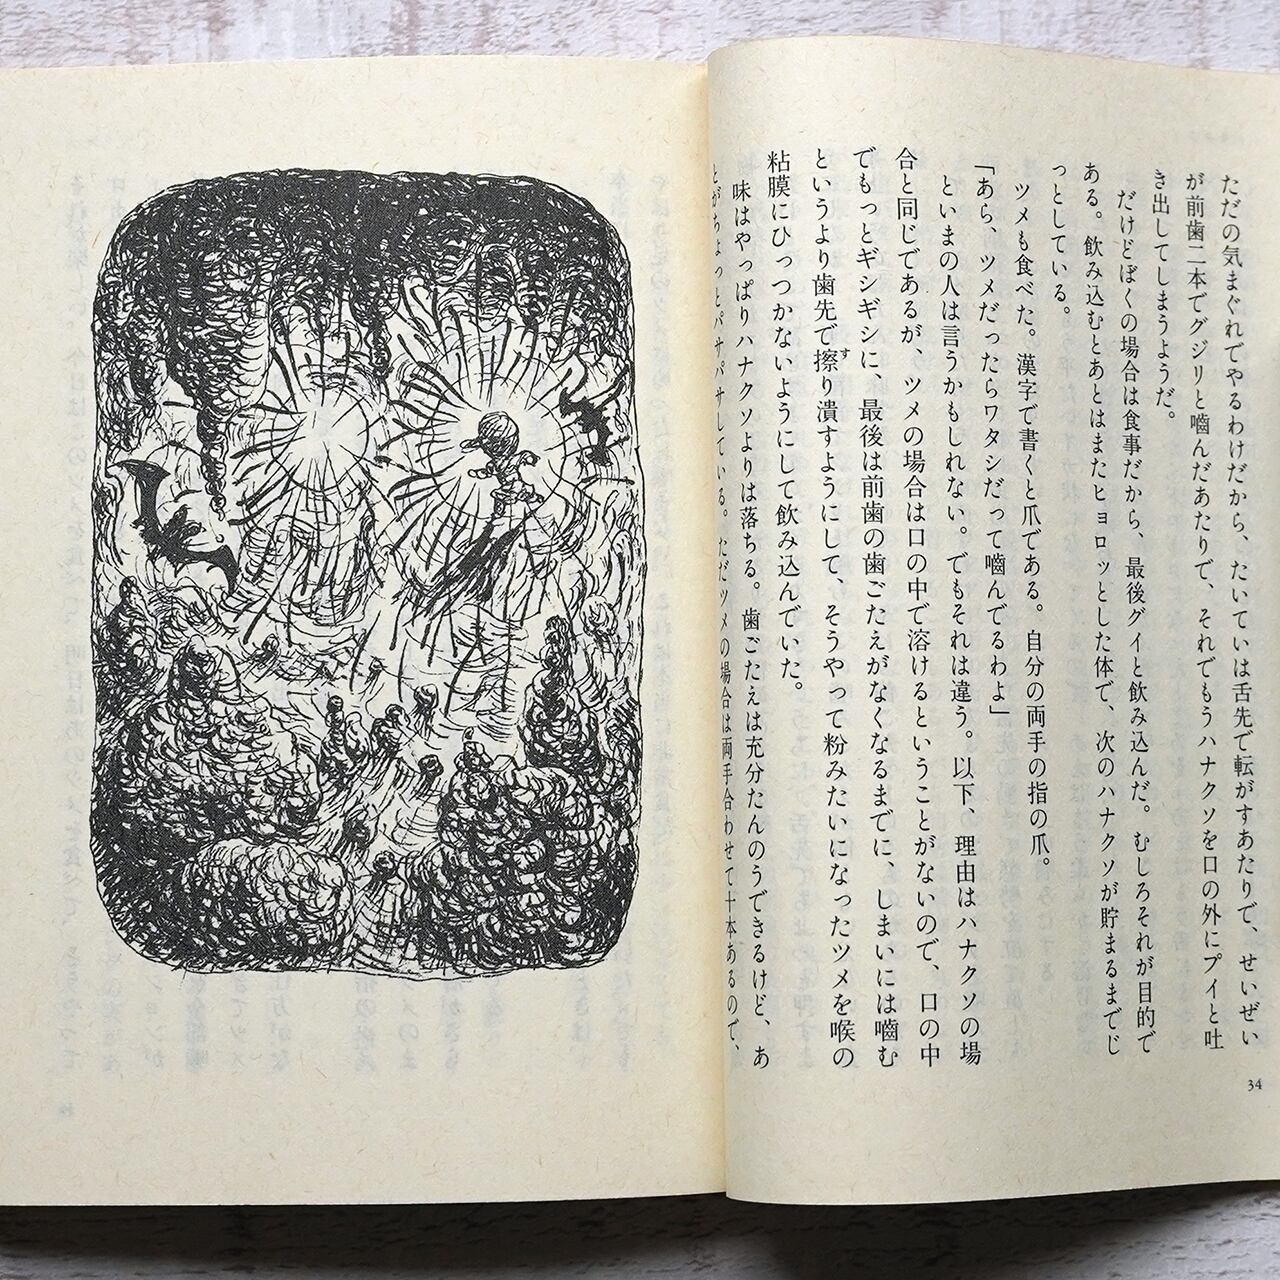 ただの気まぐれでやるわけだから、たいていは舌先で転がすあたりで、せいぜい
が前歯二本でグジリと嚙んだあたりで、それでもうハナクソを口の外にプイと吐
き出してしまうようだ。
だけどぼくの場合は食事だから、最後グイと飲み込んだ。むしろそれが目的で
ある。飲み込むとあとはまたヒョロッとした体で、次のハナクソが貯まるまでじ
っとしている。
ツメも食べた。漢字で書くと爪である。自分の両手の指の爪。
「あら、ツメだったらワタシだって嚙んでるわよ」
といまの人は言うかもしれない。でもそれは違う。以下、理由はハナクソの場
合と同じであるが、ツメの場合は口の中で溶けるということがないので、口の中
でもっとギシギシに、最後は前歯の歯ごたえがなくなるまでに、しまいには嚙む
というより歯先で擦り潰すようにして、そうやって粉みたいになったツメを喉の
粘膜にひっつかないようにして飲み込んでいた。
味はやっぱりハナクソよりは落ちる。歯ごたえは充分たんのうできるけど、あ
とがちょっとパサパサしている。ただツメの場合は両手合わせて十本あるので、
34